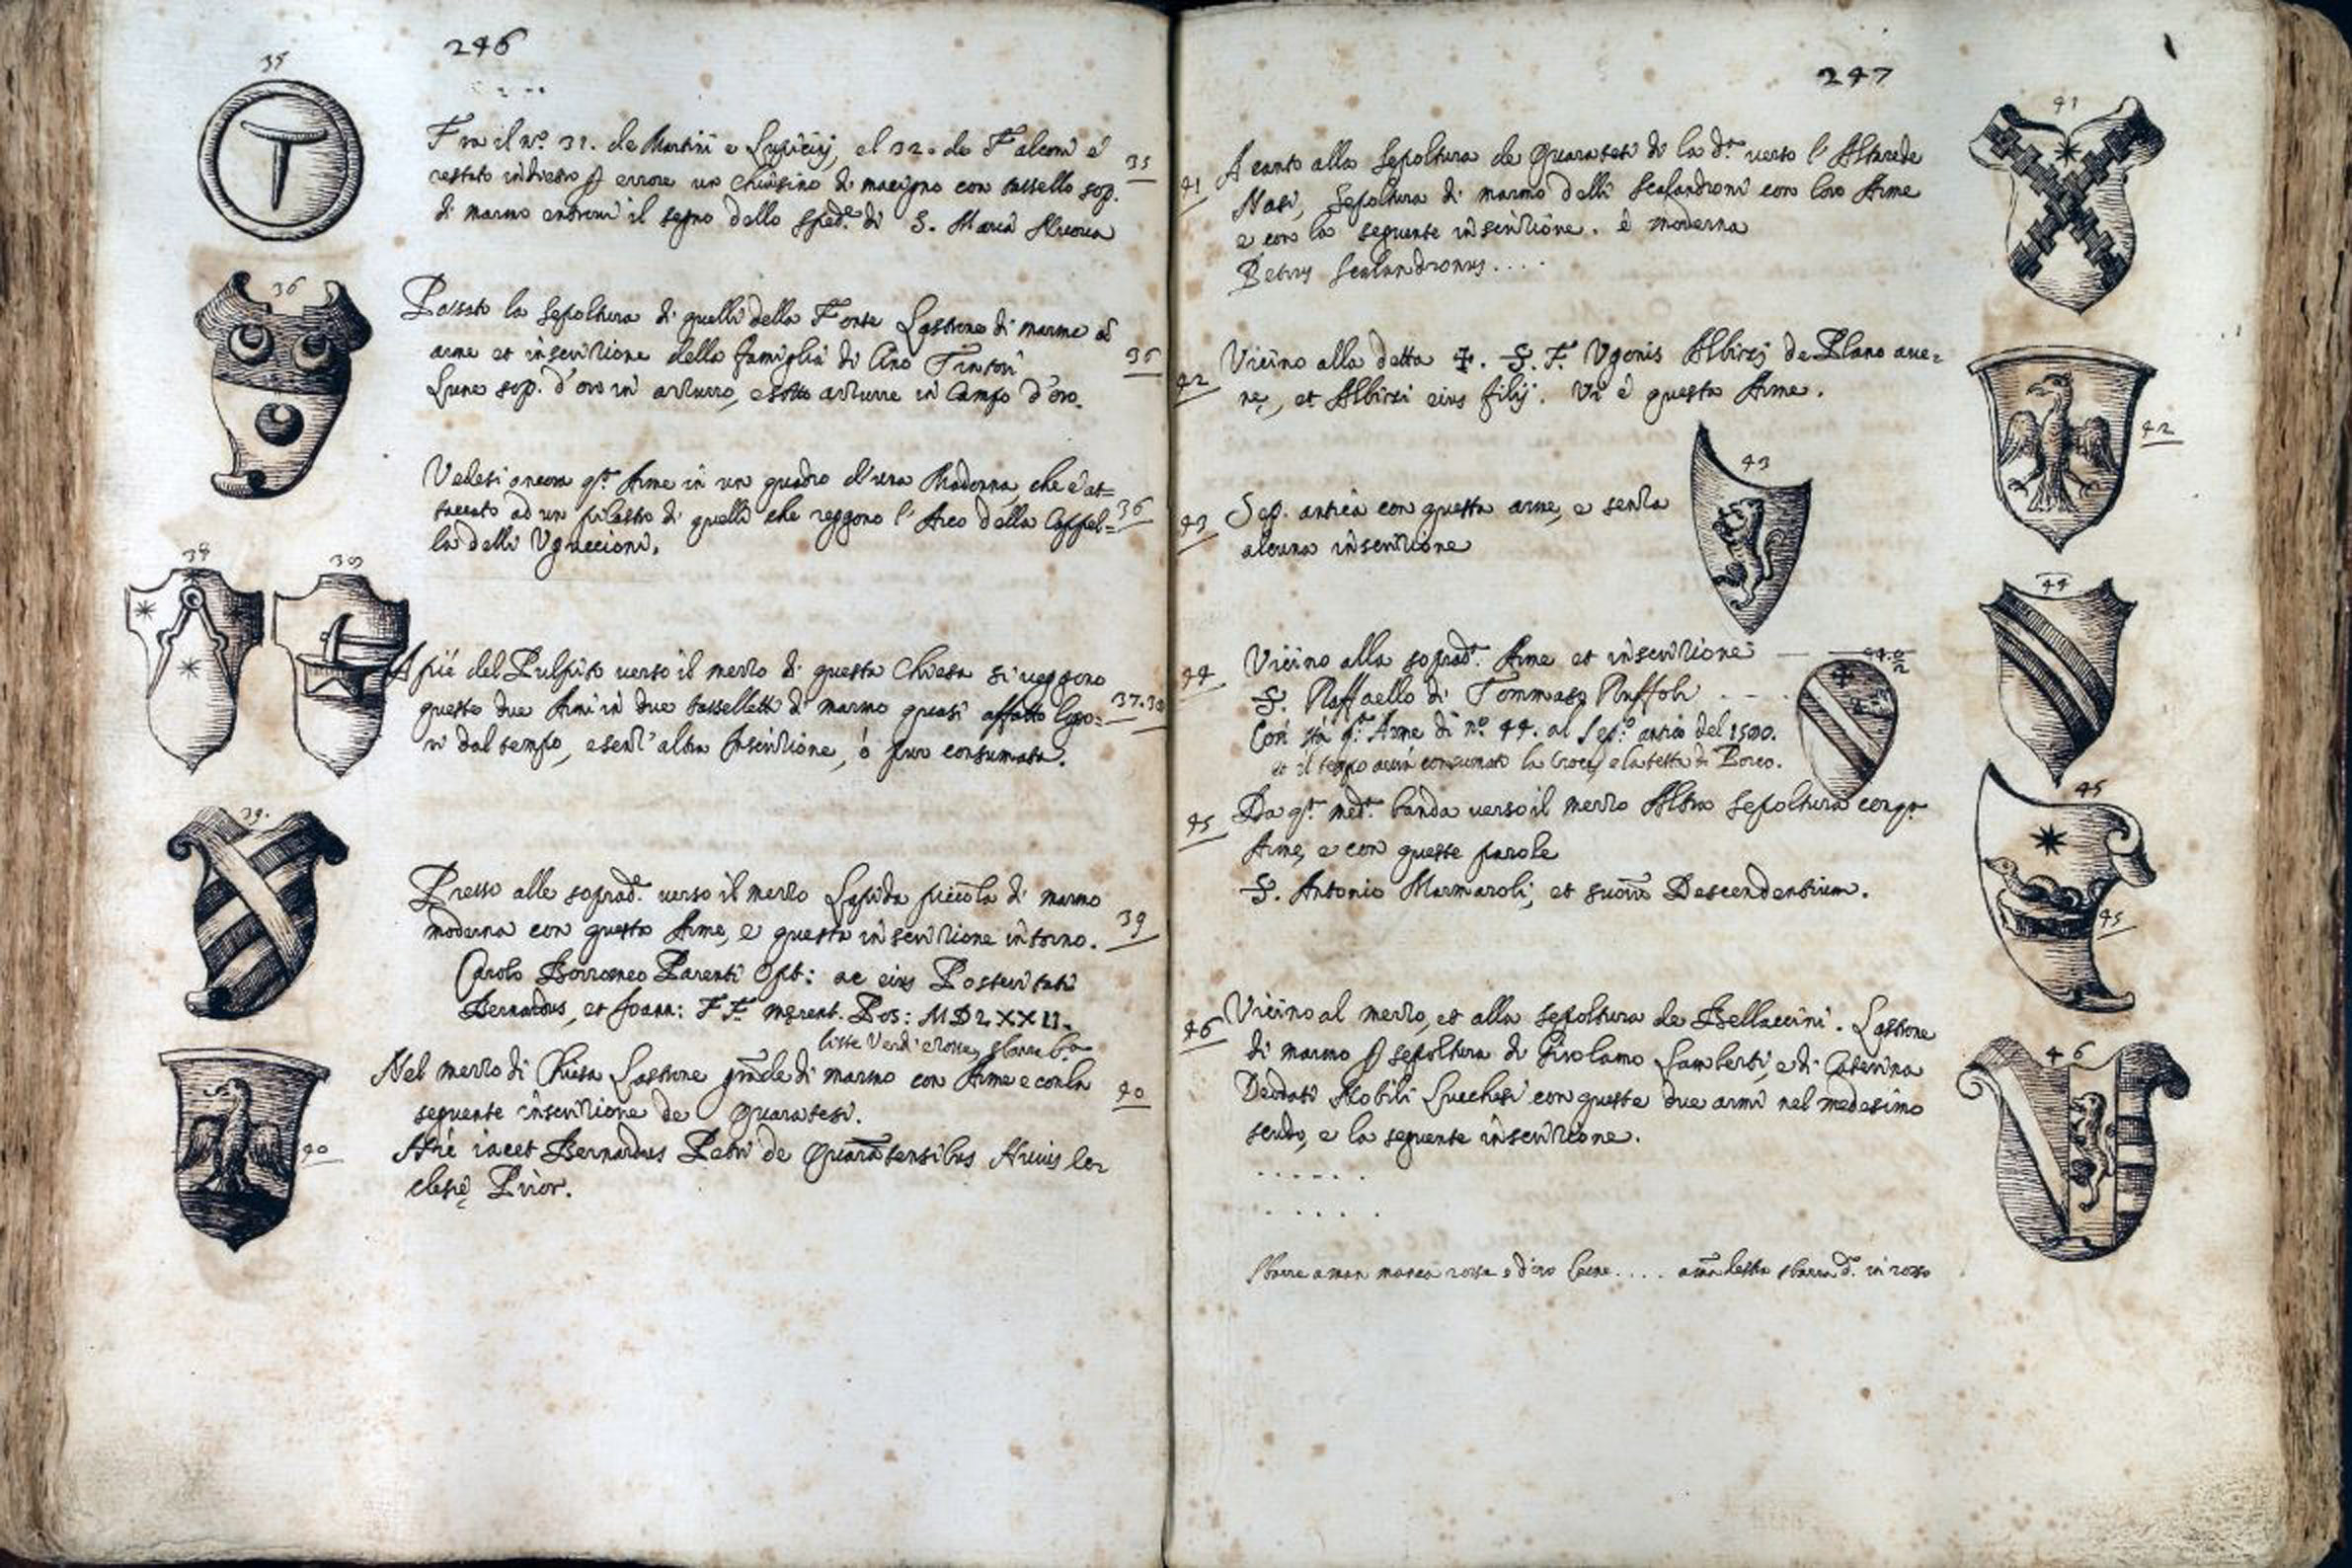 246
35
Fra il nº 31. de Martini e el 32. de Falconi è
restato indietro p errore un chiusino di macigno con tassello sop.
35
di marmo entrovi il segno dello sped.e di S. Maria Nuova
36
Passato la sepoltura di quelli della Fonte Lastrone di marmo cō
arme et inscrizione della famiglia di Cino Tintori
36
Lune sop. d'oro in azzurro, e sotto azzurre in campo d'oro.
Vedesi ancora q.ta Arme in un quadro d'una Madonna, che è at=
taccato ad un pilastro di quelli che reggono l'Arco della Cappel=
36
la delli Uguccioni.
38
A piè del Pulpito verso il mezzo di questa Chiesa si veggono
queste due Armi in due tasselletti di marmo quasi affatto logo=
37.38
ri dal tempo, e senz'altra Inscrizione, ò pur consumata.
39.
Presso alle soprad.e verso il mezzo Lapida piccola di marmo
moderna con questa Arme, e questa inscrizione intorno.
39
Carolo Borromeo Parenti Opt: ac eius Posteritati
Bernardus, et Joann: FF. merent. Pos: MDLXXII.
liste Verdi e rosse, sbarra b.a
Nel mezzo di Chiesa Lastrone grāde di marmo con Arme e con la
40
seguente inscrizione de Quaratesi.
Hic iacet Bernardus Petri de Quaratensibus Huius Ec
clesię Prior.
40
247
41
Acanto alla Sepoltura de Quaratesi di la d.ta verso l'Altare de
41
Nasi, Sepoltura di marmo delli Scalandroni con loro Arme
e con la seguente inscrizione. è moderna
Petrus Scalandronus....
Vicino alla detta ✠. S. F. Ugonis Albizi de Plano aue=
42
ne, et Albizi eius filij. Vi è questa Arme.
42
43
43
Sep. antica con questa arme, e senza
alcuna inscrizione
44
44
Vicino alla soprad.a Arme et inscrizione
S. Raffaello di Tommaso Ruffoli
Così stà q.ta Arme di nº 44. al Sep.o antico del 1500.
et il tempo avea consumato la Croce, e la testa di Porco.
45
45
Da q.ta med.a banda verso il mezzo Altra Sepoltura con q.ta
Arme, e con queste parole
S. Antonio Marmaroli, et suorū Descendentium.
45
46
Vicino al mezzo, et alla sepoltura de Bellaccini. Lastrone
di marmo p sepoltura di Girolamo Lamberti, e di Caterina
Deodati Nobili Lucchesi con queste due armi nel medesimo
scudo, e la seguente inscrizione.
. . . . . .
. . . . . .
46
Sbarre a man manca rosse e d'oro .... destra sbarra in rosso